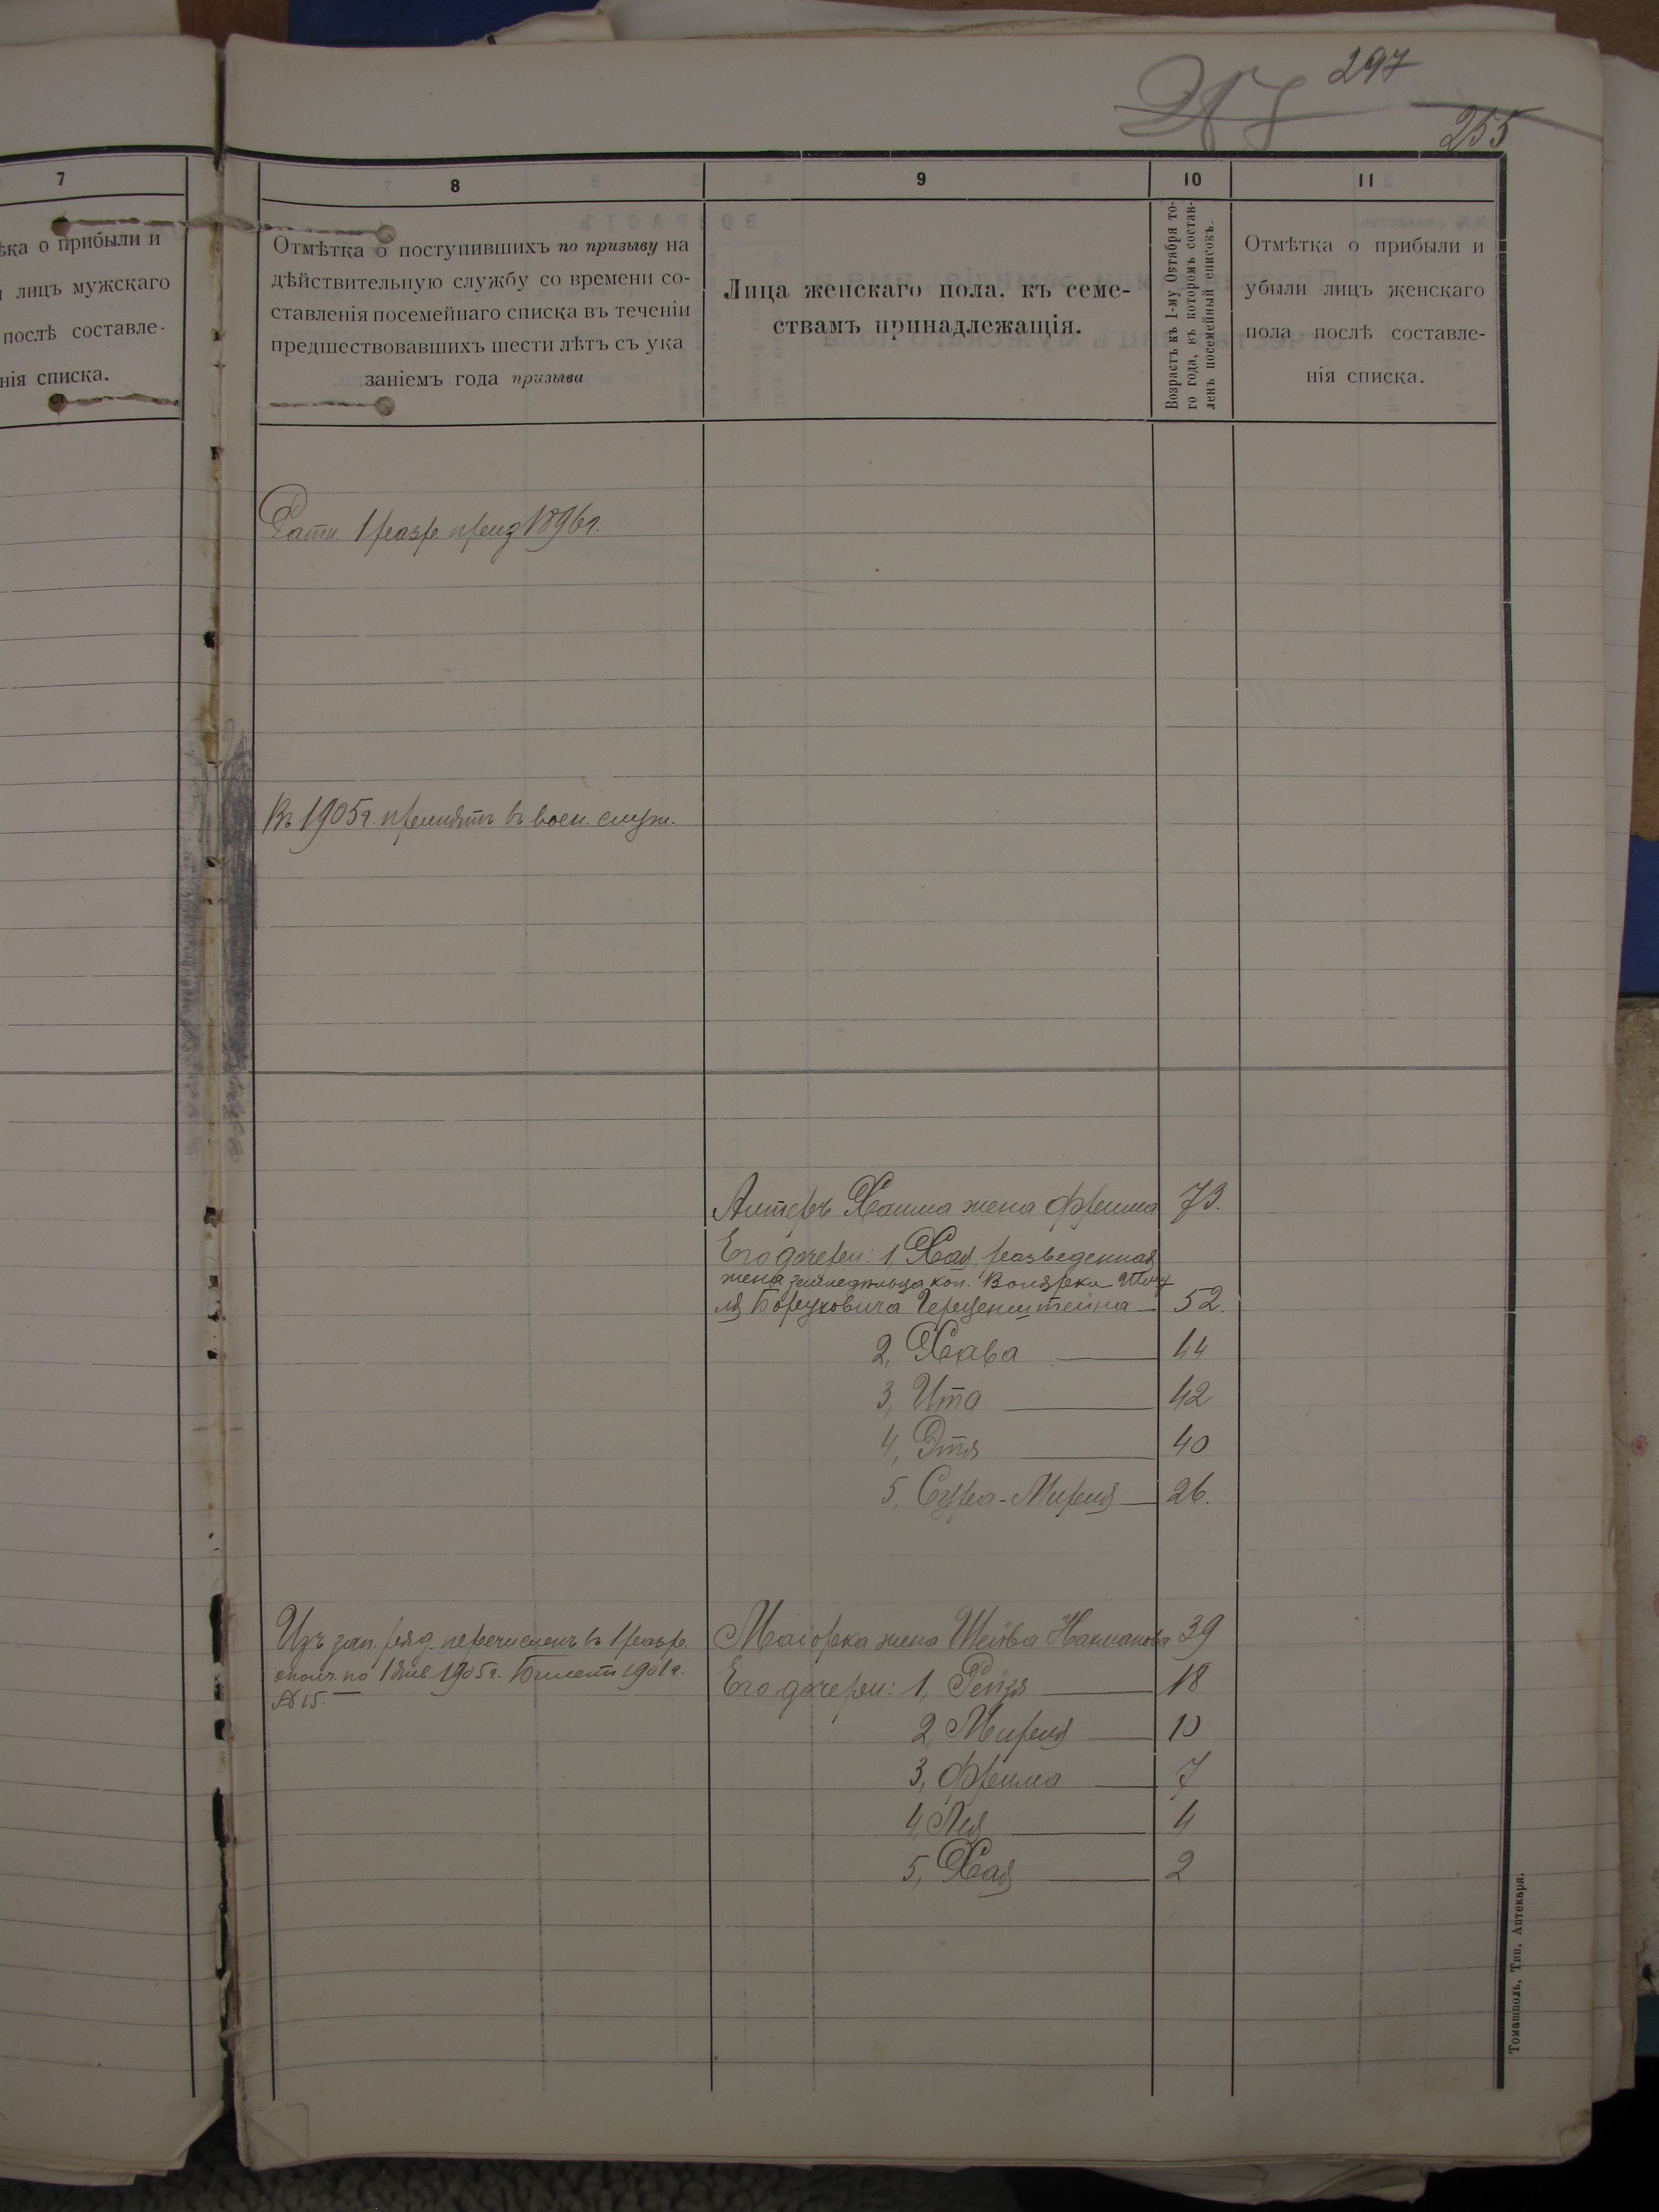 297
255
7
8
9
10
11
ѣка о прибыли и
лицъ мужскаго
послѣ составле-
нія списка.
Отмѣтка о поступившихъ по призыву на
дѣйствительную службу со времени со-
ставленія посемейнаго списка въ теченіи
предшествовавшихъ шести лѣтъ съ ука
заніемъ года призыва
Лица женскаго пола, къ семе-
ствамъ принадлежащія.
Возрастъ къ 1-му Октября то-
го года, въ которомъ состав-
ленъ посемейный списокъ.
Отмѣтка о прибыли и
убыли лицъ женскаго
пола послѣ составле-
нія списка.
Ратн. 1 разр. приз 1896 г.
Въ 1905 г. принятъ въ воен. служ.
Алтеръ Хаима жена Фреима 73.
Его дочери: 1, Хая разведенная
жена земледѣльца кол.
ля Боруховича Герщенштейна 52.
2, Хава 44
3, Ита 42
4, Этя 40
5, Сура-Миреля 26.
Изъ зап. ряд. перечисленъ въ 1 разр.
ополч по 1 Янв 1905 г. Билетъ 1901 г.
№ 15.
Маіорка жена Шейва Нахманова 39
Его дочери: 1, Рейзя 18
2, Миреля 10
3, Фреима 7
4, Лея 4
5, Хая 2
Томашполь, Тип. Аптекаря.